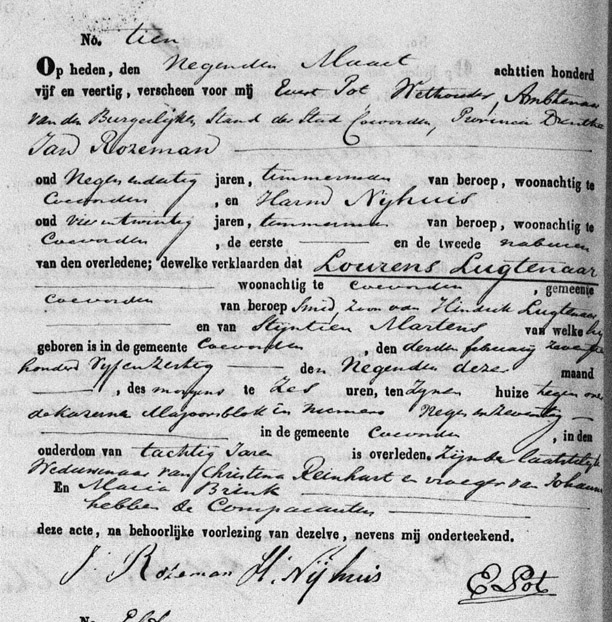 No. tien
Op heden, den Negenden Maart achttien honderd
vijf en veertig, verscheen voor mij Evert Pot Wethouder, Ambtenaar
van den Burgerlijken Stand der Stad Coevorden, Provincie Drenthe
Jan Rozeman
oud Negenendertig jaren, timmerman van beroep, woonachtig te
Coevorden, en Harm Nijhuis
oud vierentwintig jaren, timmerman van beroep, woonachtig te
Coevorden, de eerste en de tweede naburen
van den overledene; dewelke verklaarden dat Lourens Lugtenaar
woonachtig te Coevorden, gemeente
Coevorden van beroep Smid, Zoon van Hindrik Lugtenaar,
en van Stijntien Martens van welke hij
geboren is in de gemeente Coevorden, den derden februarij zeven
honderd Vyf en Zestig den Negenden dezer maand
, des morgens te Zes uren, ten Zynen huize tegen over
de kazerne Magoorsblok in nummero Negen en Zeventig
in de gemeente Coevorden, in den
ouderdom van tachtig Jaren is overleden. Zijnde laatstelijk
Weduwenaar van Christina Reinhart en vroeger van Johanna
En Maria Brink
hebben de Comparanten
deze acte, na behoorlijke voorlezing van dezelve, nevens mij onderteekend.
J. Rozeman H. Nijhuis E Pot
No. Elf